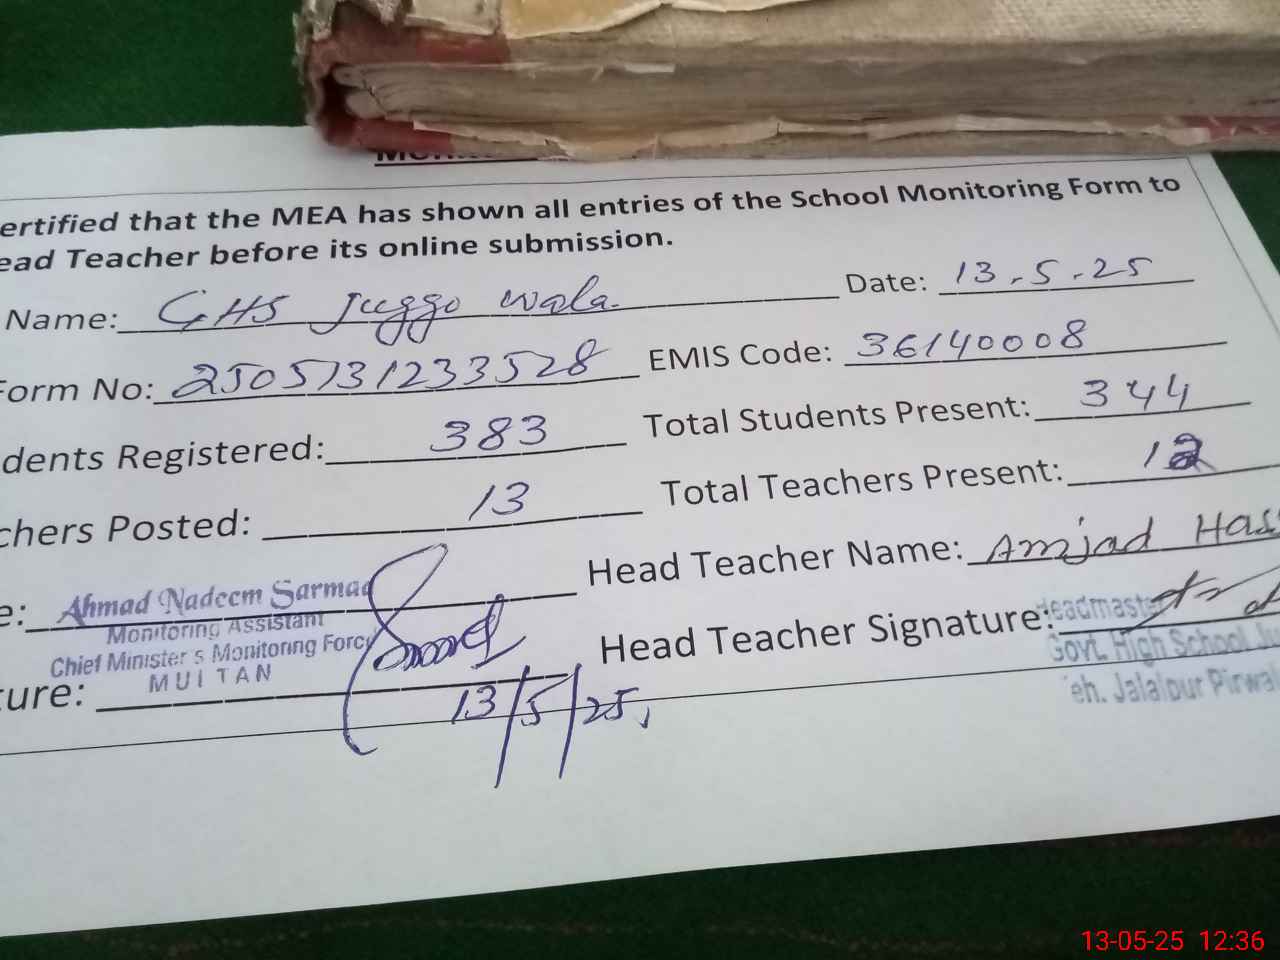 ertified that the MEA has shown all entries of the School Monitoring Form to
ead Teacher before its online submission.
Name: GHS Juggo wala. Date: 13.5.25
Form No: 2505131233528 EMIS Code: 36140008
dents Registered: 383 Total Students Present: 344
chers Posted: 13 Total Teachers Present: 12
e: Ahmad Nadeem Sarmad Head Teacher Name: Amjad Hass
Monitoring Assistant
Chief Minister's Monitoring Force
MULTAN
ture: Head Teacher Signature:
Headmaster
Govt. High School Ju
Teh. Jalalpur Pirwal
13/5/25,
13-05-25 12:36